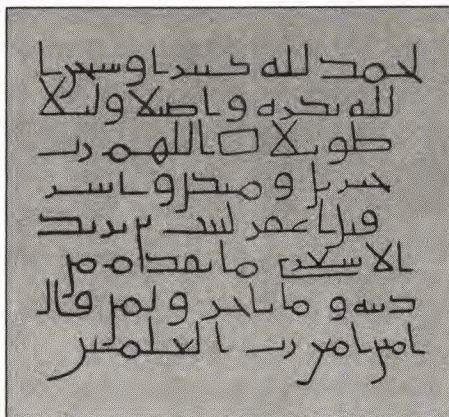 لحمد لله كثيرا وسبحن ا
لله بكرة واصيلا وليلا
طويلا اللهم رب
جبريل وميكل واسر
فيل اغفر لثبت بن يزيد
الاشعري ما تقدم من
ذنبه وما تاخر ولمن قال
امين امين رب العلمين